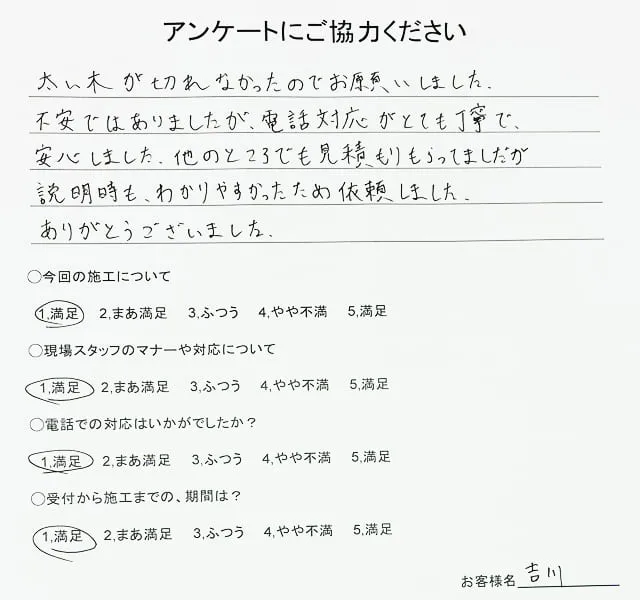 アンケートにご協力ください
太い木が切れなかったのでお願いしました.
不安ではありましたが、電話対応がとても丁寧で、
安心しました.他のところでも見積もりもらってましだが
説明時も、わかりやすかったため依頼しました.
ありがとうございました.
〇今回の施工について
1,満足 2,まあ満足 3,ふつう 4,やや不満 5,満足
〇現場スタッフのマナーや対応について
1,満足 2,まあ満足 3,ふつう 4,やや不満 5,満足
〇電話での対応はいかがでしたか？
1,満足 2,まあ満足 3,ふつう 4,やや不満 5,満足
〇受付から施工までの、期間は？
1,満足 2,まあ満足 3,ふつう 4,やや不満 5,満足
お客様名 吉川